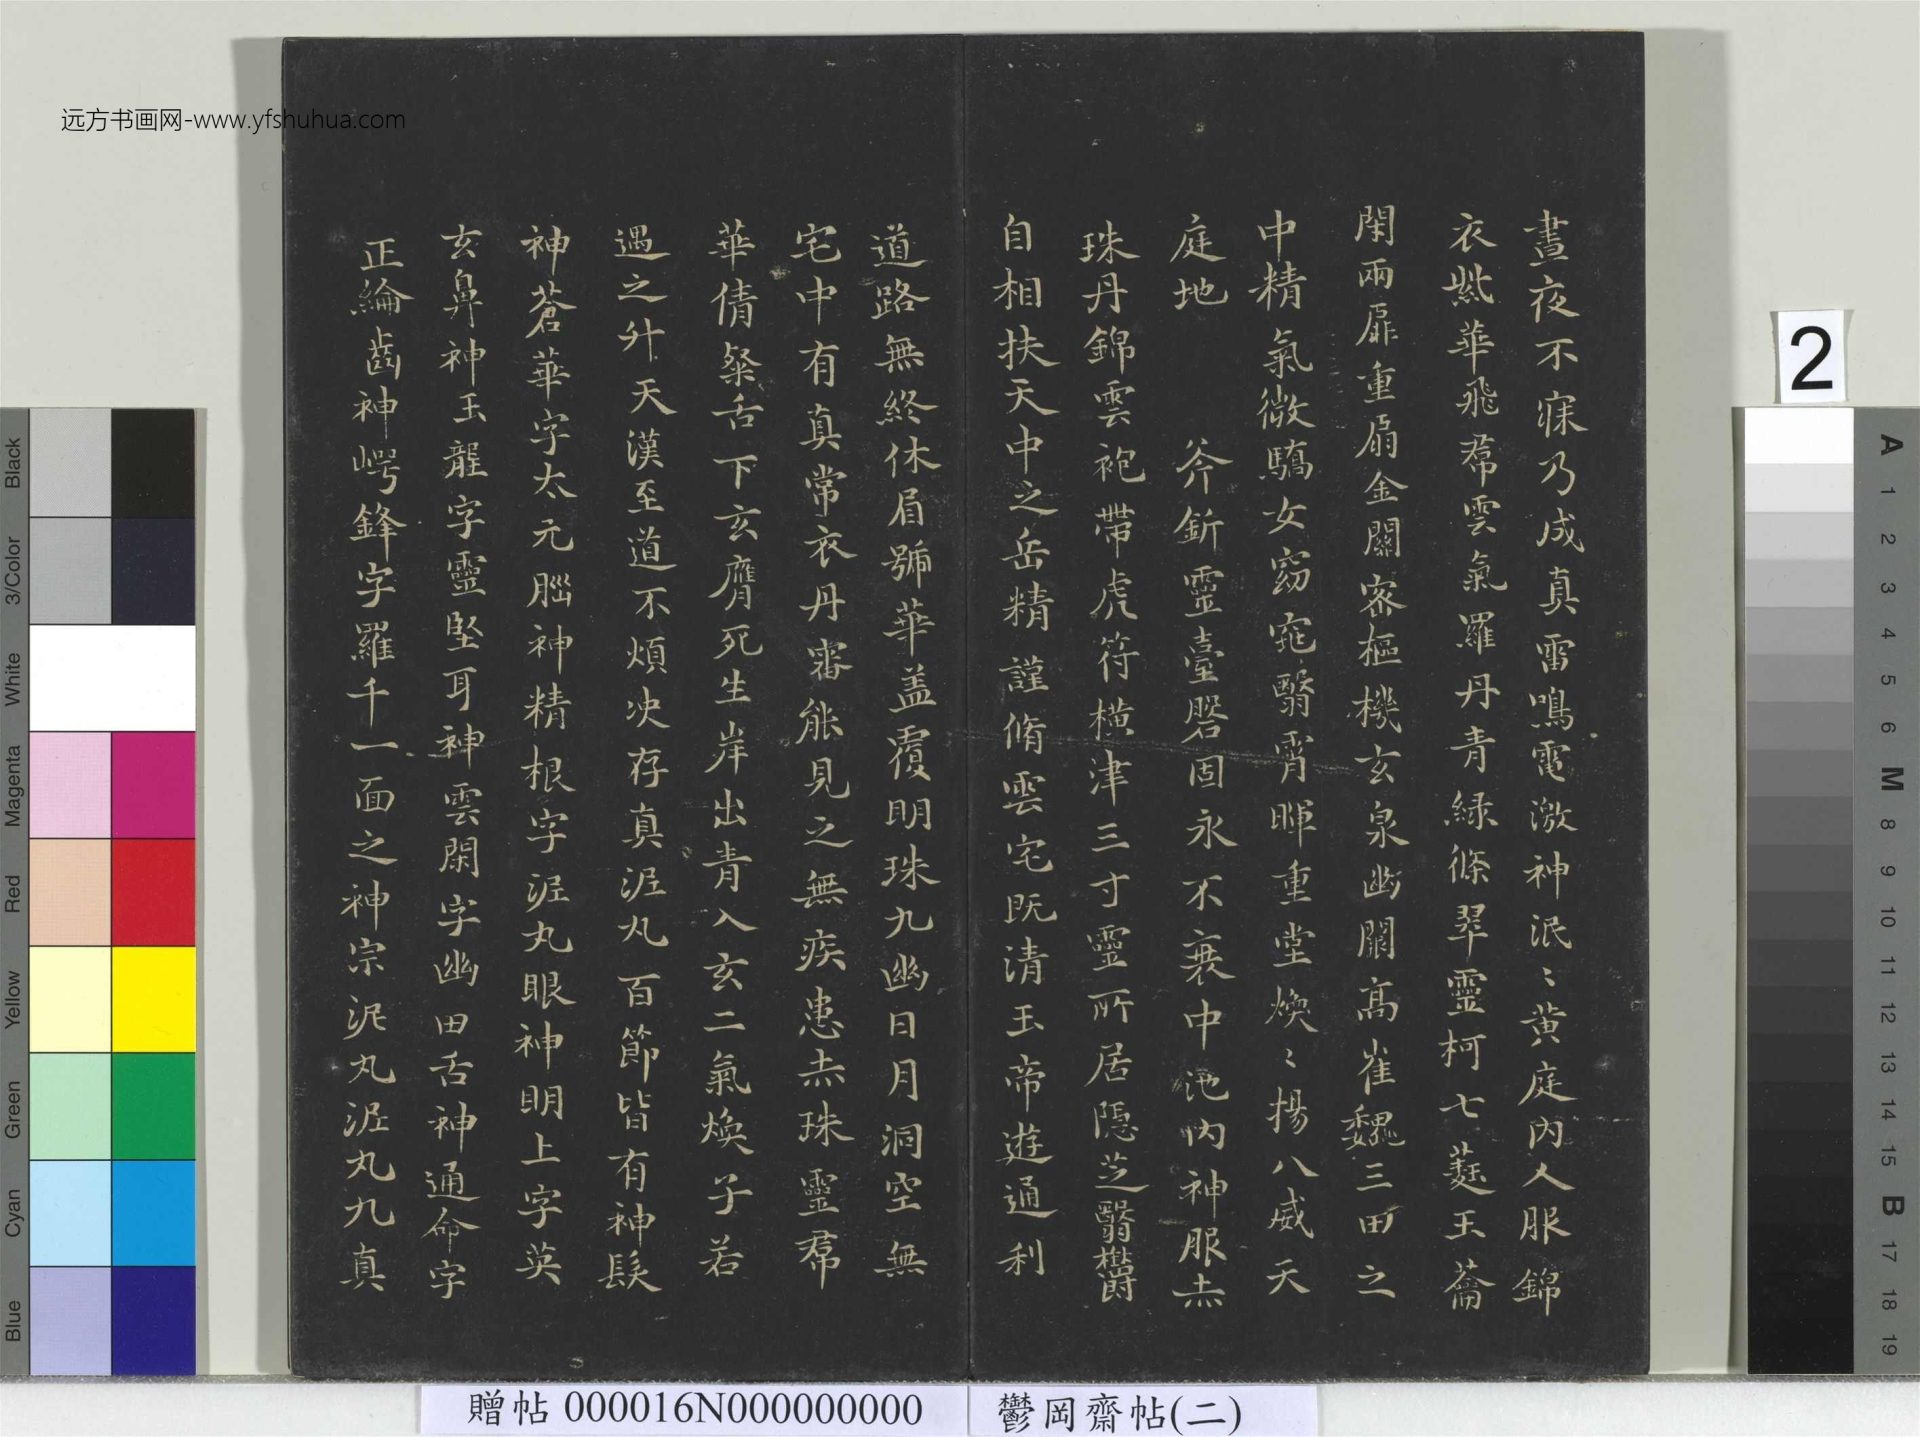 远方书画网-www.yfshuhua.com
晝夜不寐乃成真雷鳴電激神泯〻黃庭內人服錦
衣紫華飛帬雲氣羅丹青綠條翠靈柯七蕤玉籥
閑兩扉重扇金關密樞機玄泉幽關高崔巍三田之
中精氣微驕女窈窕翳霄暉重堂煥〻揚八威天
庭地 斧釿靈臺磐固永不衰中池內神服赤
珠丹錦雲袍帶虎符橫津三寸靈所居隱芝翳欝
自相扶天中之岳精謹脩雲宅既清玉帝遊通利
道路無終休眉號華盖覆明珠九幽日月洞空無
宅中有真常衣丹審能見之無疾患赤珠靈帬
華倩粲舌下玄膺死生岸出青入玄二氣煥子若
遇之升天漢至道不煩决存真泥丸百節皆有神髮
神蒼華字太元腦神精根字泥丸眼神明上字英
玄鼻神玉龍字靈堅耳神雲閑字幽田舌神通命字
正綸齒神崿鋒字羅千一面之神宗泥丸泥丸九真
贈帖 000016N000000000
鬱岡齋帖(二)
2
Black
3/Color
White
Magenta
Red
Yellow
Green
Cyan
Blue
A
1
2
3
4
5
6
M
8
9
10
11
12
13
14
15
B
17
18
19